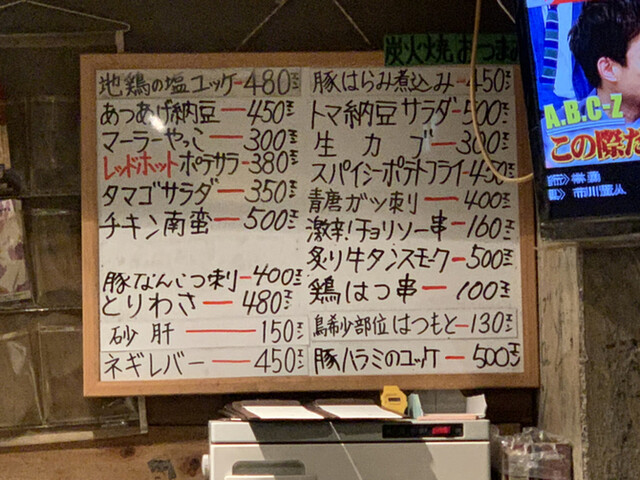 炭火焼 おつまみ
地鶏の塩ユッケ―480エン
あつあげ納豆―450エン
マーラーやっこ―300エン
レッドホットポテサラ―380エン
タマゴサラダ―350エン
チキン南蛮―500エン
豚なんこつ刺―400エン
とりわさ―480エン
砂肝―150エン
ネギレバー―450エン
豚はらみ煮込み―450エン
トマ納豆サラダ―500エン
生カブ―300エン
スパイシーポテトフライ―450エン
青唐ガツ刺―400エン
激辛!チョリソー串―160エン
炙り牛タンスモーク―500エン
鶏はつ串―100エン
鳥希少部位はつもと―130エン
豚ハラミのユッケ―500エン
A.B.C-Z
この際だ